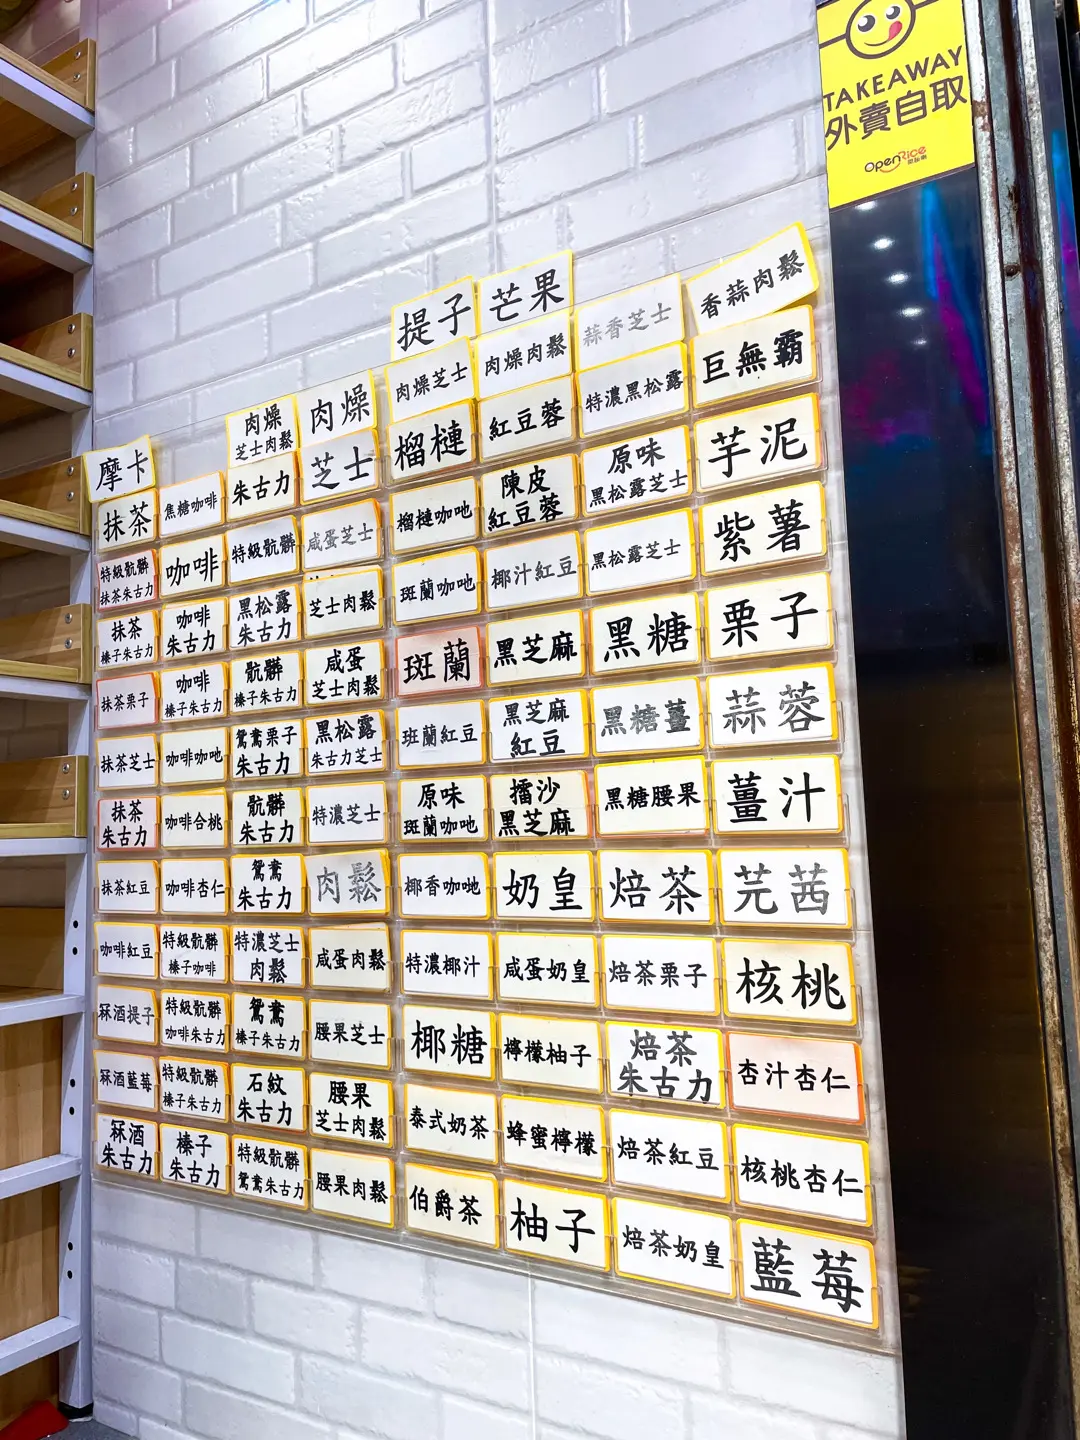 TAKEAWAY
外賣自取
OpenRice
開飯喇
摩卡
抹茶
特級骯髒
抹茶朱古力
抹茶
榛子朱古力
抹茶栗子
抹茶芝士
抹茶
朱古力
抹茶紅豆
咖啡紅豆
冧酒提子
冧酒藍莓
冧酒
朱古力
焦糖咖啡
咖啡
咖啡
朱古力
咖啡
榛子朱古力
咖啡咖吔
咖啡合桃
咖啡杏仁
特級骯髒
榛子咖啡
特級骯髒
咖啡朱古力
特級骯髒
榛子朱古力
榛子
朱古力
肉燥
芝士肉鬆
朱古力
特級骯髒
黑松露
朱古力
骯髒
榛子朱古力
鴛鴦栗子
朱古力
骯髒
朱古力
鴛鴦
朱古力
特濃芝士
肉鬆
鴛鴦
榛子朱古力
石紋
朱古力
特級骯髒
鴛鴦朱古力
肉燥
芝士
咸蛋芝士
芝士肉鬆
咸蛋
芝士肉鬆
黑松露
朱古力芝士
特濃芝士
肉鬆
咸蛋肉鬆
腰果芝士
腰果
芝士肉鬆
腰果肉鬆
提子
肉燥芝士
榴槤
榴槤咖吔
斑蘭咖吔
斑蘭
斑蘭紅豆
原味
斑蘭咖吔
椰香咖吔
特濃椰汁
椰糖
泰式奶茶
伯爵茶
芒果
肉燥肉鬆
紅豆蓉
陳皮
紅豆蓉
椰汁紅豆
黑芝麻
黑芝麻
紅豆
擂沙
黑芝麻
奶皇
咸蛋奶皇
檸檬柚子
蜂蜜檸檬
柚子
蒜香芝士
特濃黑松露
原味
黑松露芝士
黑松露芝士
黑糖
黑糖薑
黑糖腰果
焙茶
焙茶栗子
焙茶
朱古力
焙茶紅豆
焙茶奶皇
香蒜肉鬆
巨無霸
芋泥
紫薯
栗子
蒜蓉
薑汁
芫茜
核桃
杏汁杏仁
核桃杏仁
藍莓